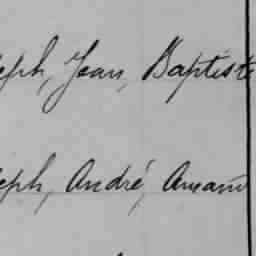 eph, Jean, Baptiste
eph, André, Amam